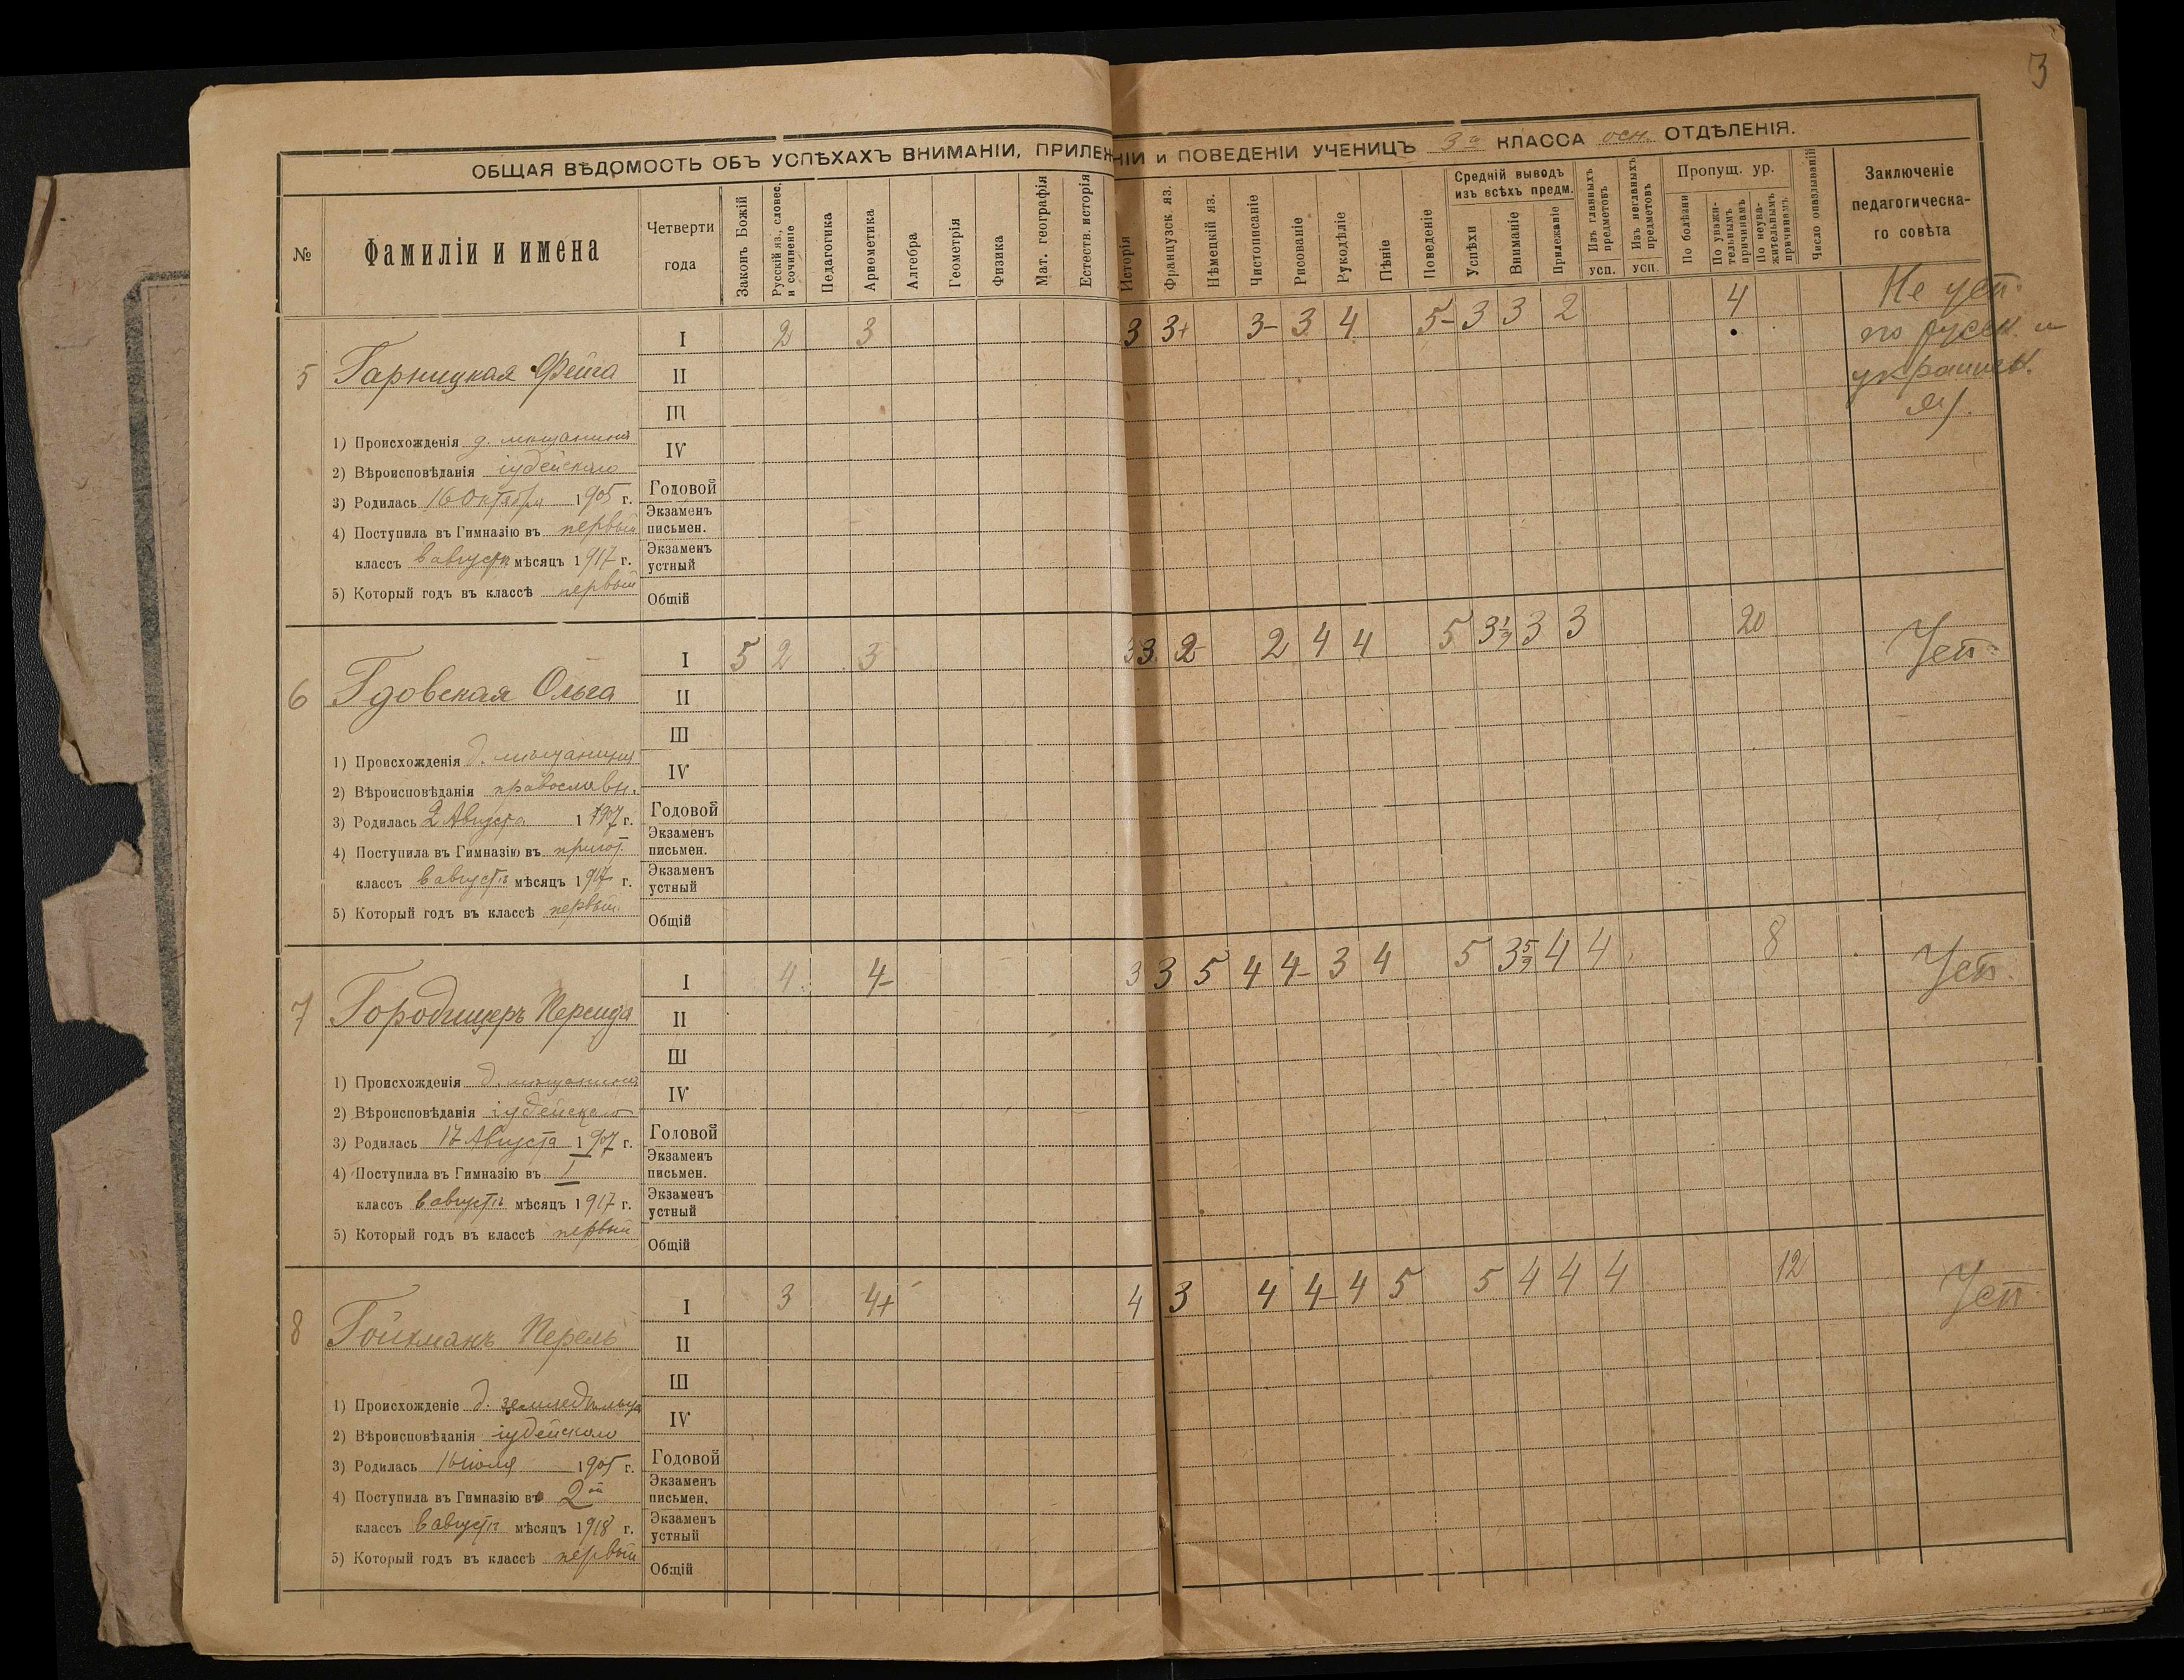 3
ОБЩАЯ ВѢДОМОСТЬ ОБЪ УСПѢХАХЪ ВНИМАНІИ, ПРИЛЕЖНІИ и ПОВЕДЕНІИ УЧЕНИЦЪ 3 а КЛАССА осн. ОТДѢЛЕНІЯ.
№
Фамиліи и имена
Четверти
года
Законъ Божій
Русскій яз., словес.
и сочиненіе
Педагогика
Ариѳметика
Алгебра
Геометрія
Физика
Мат. географія
Естеств. исторія
Исторія
Французск яз.
Нѣмецкій яз.
Чистописаніе
Рисованіе
Рукодѣліе
Пѣніе
Поведеніе
Средній выводъ
изъ всѣхъ предм.
Успѣхи
Вниманіе
Прилежаніе
Изъ главныхъ
предметовъ
усп.
Изъ неглавныхъ
предметовъ
усп.
Пропущ. ур.
По болѣзни
По уважи-
тельнымъ
причинамъ
По неува-
жительнымъ
причинамъ
Число опаздываній
Заключеніе
педагогическа-
го совѣта
5 Гарницкая Фейга
I 2 3 3 3+ 3- 3 4 5- 3 3 2 4
Не усп.
по русск. и
украинск.
яз.
II
III
1) Происхожденія д. мѣщанина
IV
2) Вѣроисповѣданія іудейскаго
3) Родилась 16 Октября 1905 г.
Годовой
4) Поступила въ Гимназію въ первый
Экзаменъ
письмен.
классъ в августѣ мѣсяцъ 1917 г.
Экзаменъ
устный
5) Который годъ въ классѣ первый
Общій
6 Гдовская Ольга
I 5 2 3 3 3 2 2 4 4 5 3 1/9 3 3 20 Усп.
II
III
1) Происхожденія д. мѣщанина
IV
2) Вѣроисповѣданія православн.
3) Родилась 2 Августа 1907 г.
Годовой
4) Поступила въ Гимназію въ пригот.
Экзаменъ
письмен.
классъ в августѣ мѣсяцъ 1917 г.
Экзаменъ
устный
5) Который годъ въ классѣ первый
Общій
7 Городищеръ Персида
I 4 4- 3 3 5 4 4- 3 4 5 3 5/9 4 4 8 Усп.
II
III
1) Происхожденія д. мѣщанина
IV
2) Вѣроисповѣданія іудейскаго
3) Родилась 17 Августа 1907 г.
Годовой
4) Поступила въ Гимназію въ I
Экзаменъ
письмен.
классъ в августѣ мѣсяцъ 1917 г.
Экзаменъ
устный
5) Который годъ въ классѣ первый
Общій
8 Гойхманъ Перель
I 3 4+ 4 3 4 4- 4 5 5 4 4 4 12 Усп.
II
III
1) Происхожденіе д. земледѣльца
IV
2) Вѣроисповѣданія іудейскаго
3) Родилась 1905 г.
Годовой
4) Поступила въ Гимназію въ 2ой
Экзаменъ
письмен.
классъ в августѣ мѣсяцъ 1918 г.
Экзаменъ
устный
5) Который годъ въ классѣ первый
Общій